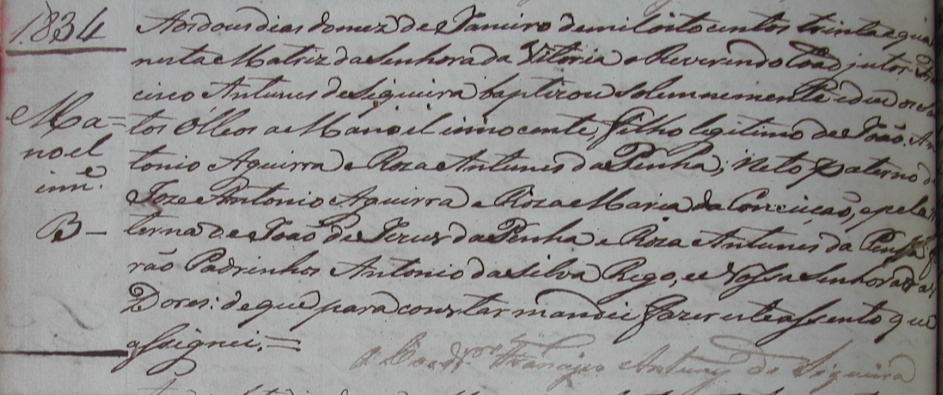 1834
Ma=
noel
inn.e
B-
Aos dous dias do mez de Janeiro de mil oito centos trinta e qua
nesta Matriz da Senhora da Vitoria o Reverendo Coadjutor Fran
cisco Antunes de Siqueira baptizou solemnemente e deu os san
tos Olleos a Manoel innocente, filho legitimo de João An
tonio Aguirra e Roza Antunes da Penha; Neto paterno de
Joze Antonio Aguirra e Roza Maria da Conceição, e pela
terna de João de Jezus da Penha e Roza Antunes da Penha
rão Padrinhos Antonio da Silva Rego, e Nossa Senhora das
Dores: de que para constar mandei fazer este assento que
assignei.=
o Coad.or Francisco Antunes de Siqueira